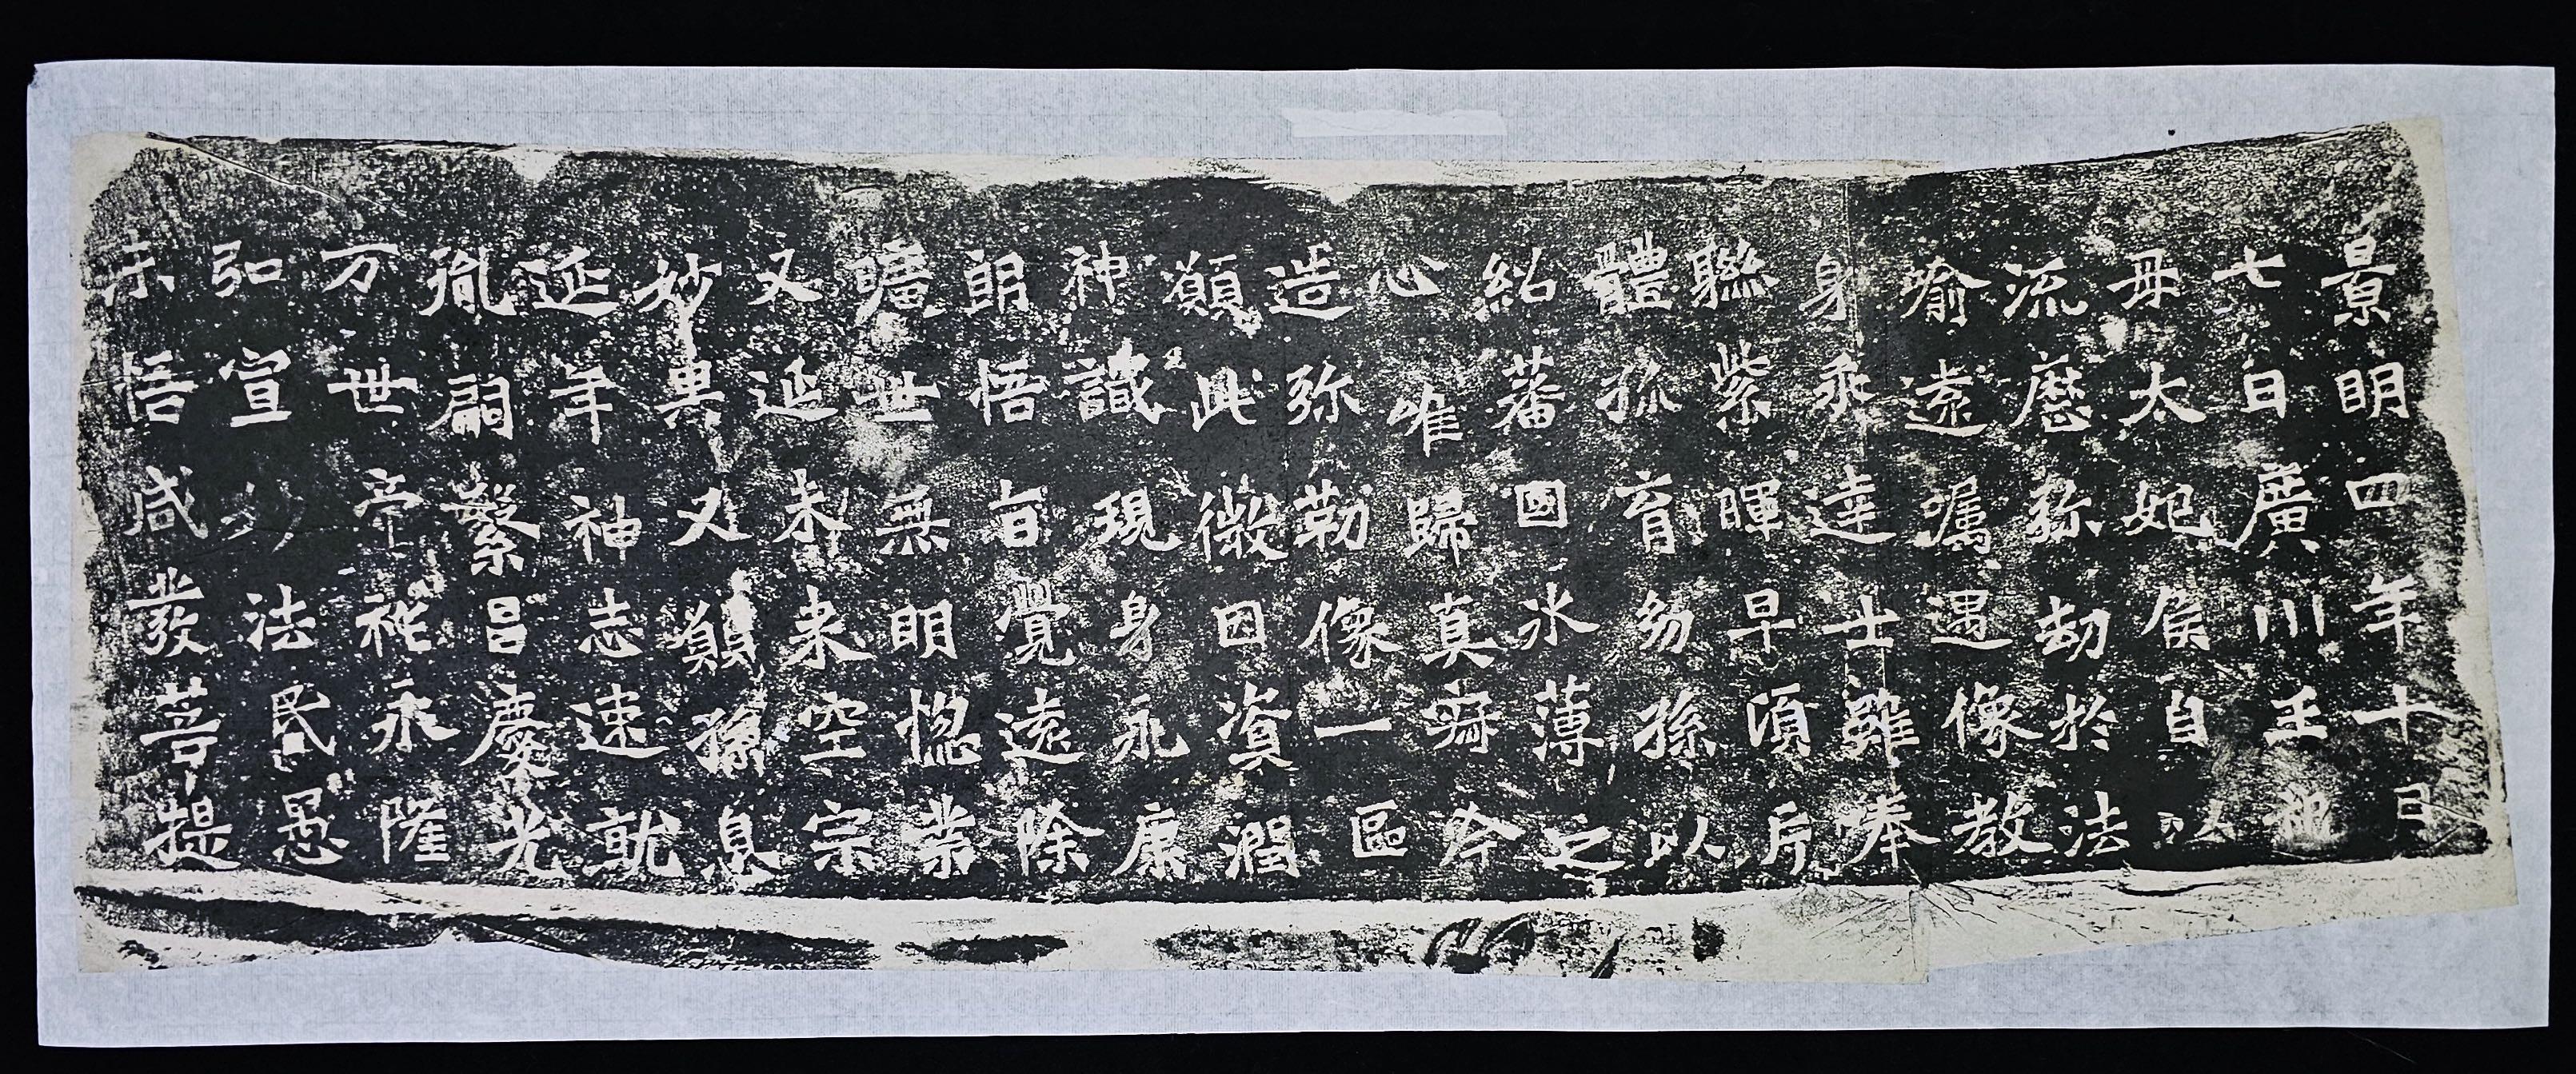 景明四年十月
七日廣川王祖
母太妃侯自以
流歷弥劫於法
喻遠囑遇像教
身乘達士雖奉
聯紫暉早頃片
體孤育幼孫以
紹蕃國氷薄之
心唯歸真寂今
造弥勒像一區
願此微因資潤
神識現身永康
朗悟旨覺遠除
曠世無明惚業
又延未来空宗
妙果又願孫息
延年神志速就
胤嗣繁昌慶光
万世帝祚永隆
弘宣妙法昏愚
未悟咸發菩提